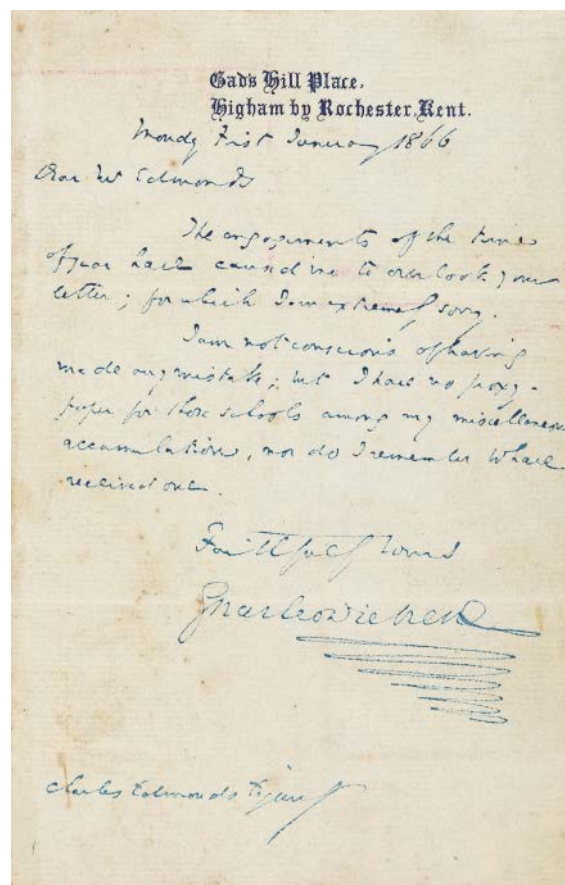 Gad's Hill Place,
Higham by Rochester, Kent.
Monday First January 1866
Dear Mr Edmonds
The engagements of the time
of year have caused me to overlook your
letter; for which I am extremely sorry.
I am not conscious of having
made any mistake; but I have no proxy-
paper for those schools among my miscellaneous
accumulations, nor do I remember to have
received one.
Faithfully Yours
Charles Dickens
Charles Edmonds Esquire